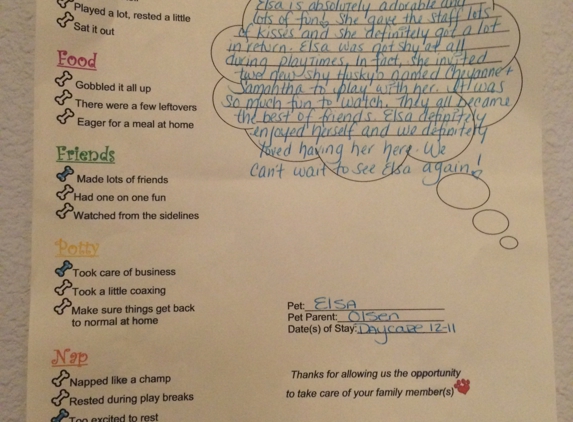 Played a lot, rested a little
Sat it out
Food
Gobbled it all up
There were a few leftovers
Eager for a meal at home
Friends
Made lots of friends
Had one on one fun
Watched from the sidelines
Potty
Took care of business
Took a little coaxing
Make sure things get back
to normal at home
Nap
Napped like a champ
Rested during play breaks
Too excited to rest
Elsa is absolutely adorable and
lots of fun! She gave the staff lots
of kisses and she definitely got a lot
in return. Elsa was not shy at all
during playtimes. In fact, she invited
two new shy Huskys named Cheyanne +
Samantha to play with her. It was
so much fun to watch. They all became
the best of friends. Elsa definitely
enjoyed herself and we definitely
loved having her here. We
can't wait to see Elsa again!
Pet: ElSA
Pet Parent: Olsen
Date(s) of Stay: Daycare 12-11
Thanks for allowing us the opportunity
to take care of your family member(s)